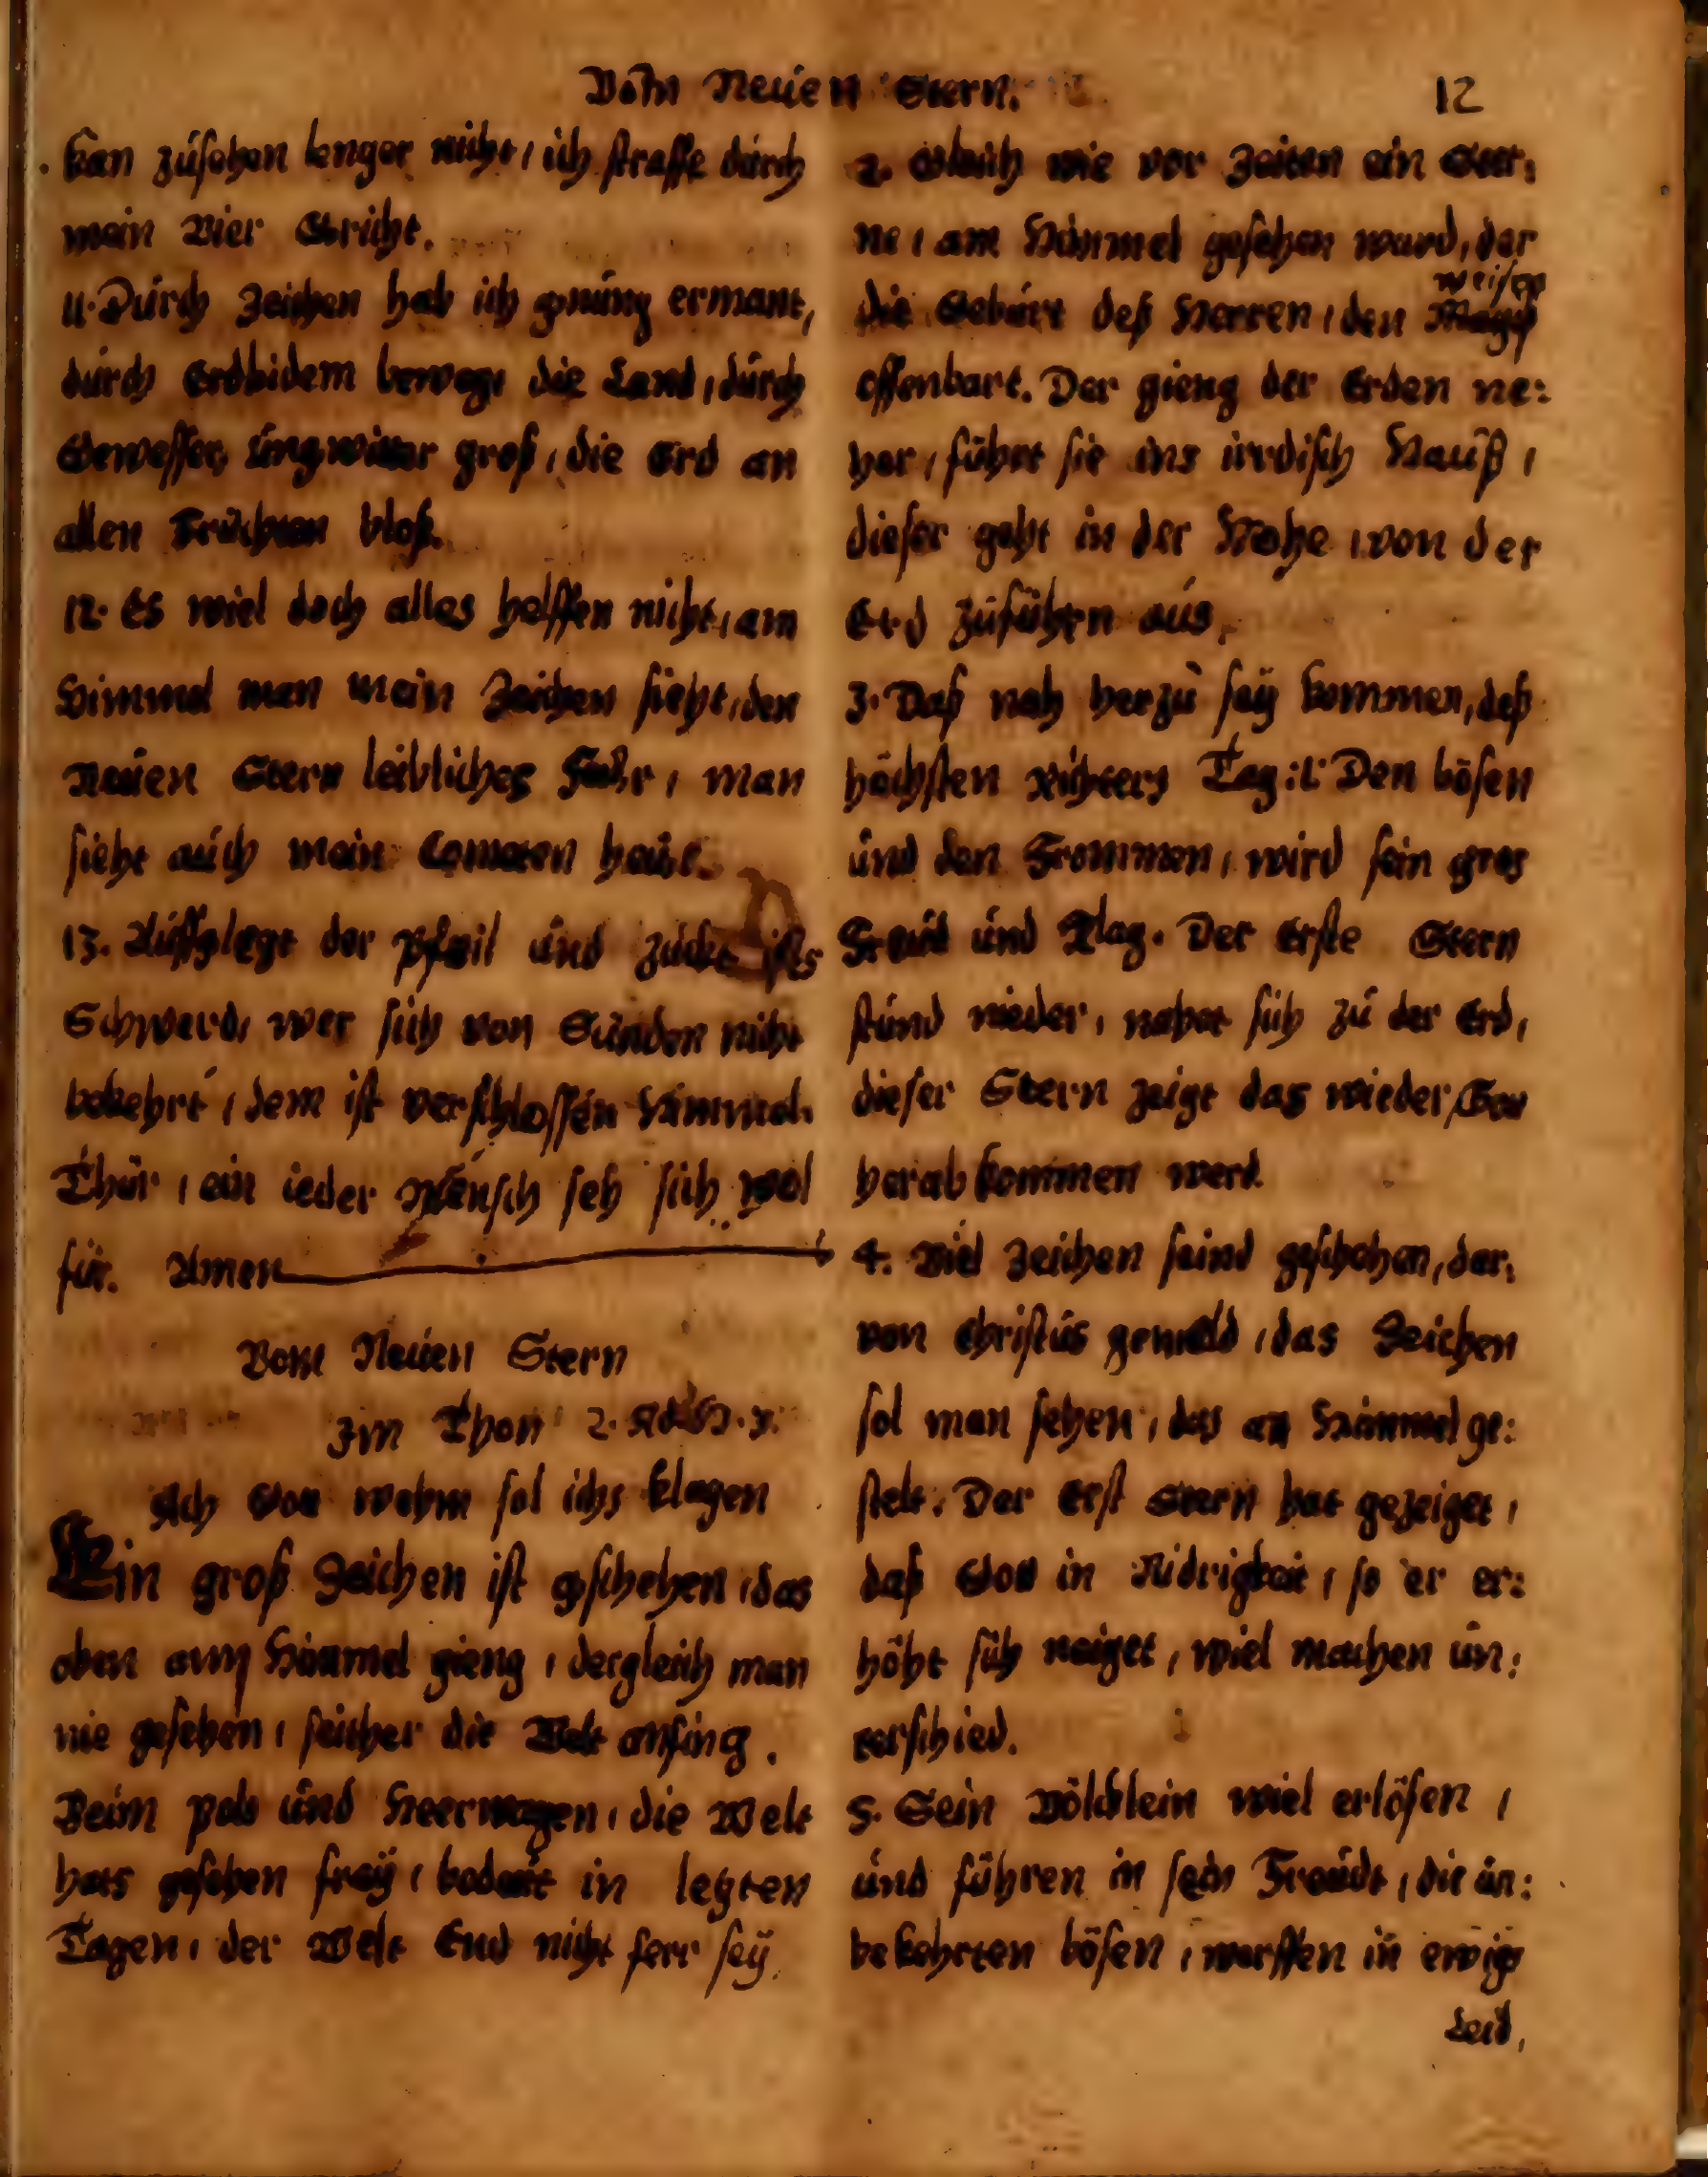 Vom Neüen Stern.
12
kan züsehen lenger nicht, ich straffe dürch
mein Vier Gricht.
11. Dürch Zeichen hab ich gnüng ermant,
dürch Erdbidem bewegt die Land, dürch
Gewesser, üngwitter groß, die Erd an
allen Früchten bloß.
12. Es wiel doch alles helffen nicht, am
Himmel man mein Zeichen sieht, den
Neüen Stern leibliches, man
sieht aüch mein Cometen heüt.
13. Aüffglegt der Pfeil ünd zückt ists
Schwerd, wer sich von Sünden nicht
bekehrt, dem ist verschlossen Himmel.
Thür, ein ieder Mensch seh sich wol
für. Amen
Vom Neüen Stern
Im Thon
Ach Gott wehm sol ichs klagen
Ein groß Zeichen ist gschehen, das
oben am Himmel gieng, dergleich man
nie gesehen, seither die Welt anfing.
Beim Pols ünd Heerwagen, die Welt
hats gesehen frey, bedeüt in letzten
Tagen, der Welt End nicht ferr sey.
2. Gleich wie vor Zeiten ein Ster:
ne, am Himmel gesehen ward, der
die Gebürt deß Herren, den weisen
offenbart. Der gieng der Erden ne:
her, führt sie ins irrdisch Haüß,
dieser geht in der Höhe, von der
Erd züführn aüs,
3. Daß nah herzü sey kommen, deß
höchsten richters Tag:l: Den bösen
ünd den Frommen, wird sein gros
Freüd ünd Plag. Der Erste Stern
stünd nieder, nahet sich zü der Erd,
dieser Stern zeigt das wieder, Gott
herab kommen werd.
4. Viel Zeichen seind geschehen, dar:
von Christüs gemeld, das Zeichen
sol man sehen, das an Himmel ge:
stelt. Der Erst Stern hat gezeiget,
daß Gott in Nidrigkeit, so er er:
höht sich neiget, wiel machen ün:
terschied.
5. Sein Völcklein wiel erlösen,
ünd führen in sein Freüdt, die ün:
bekehrten bösen, werffen in ewigs
Leid,